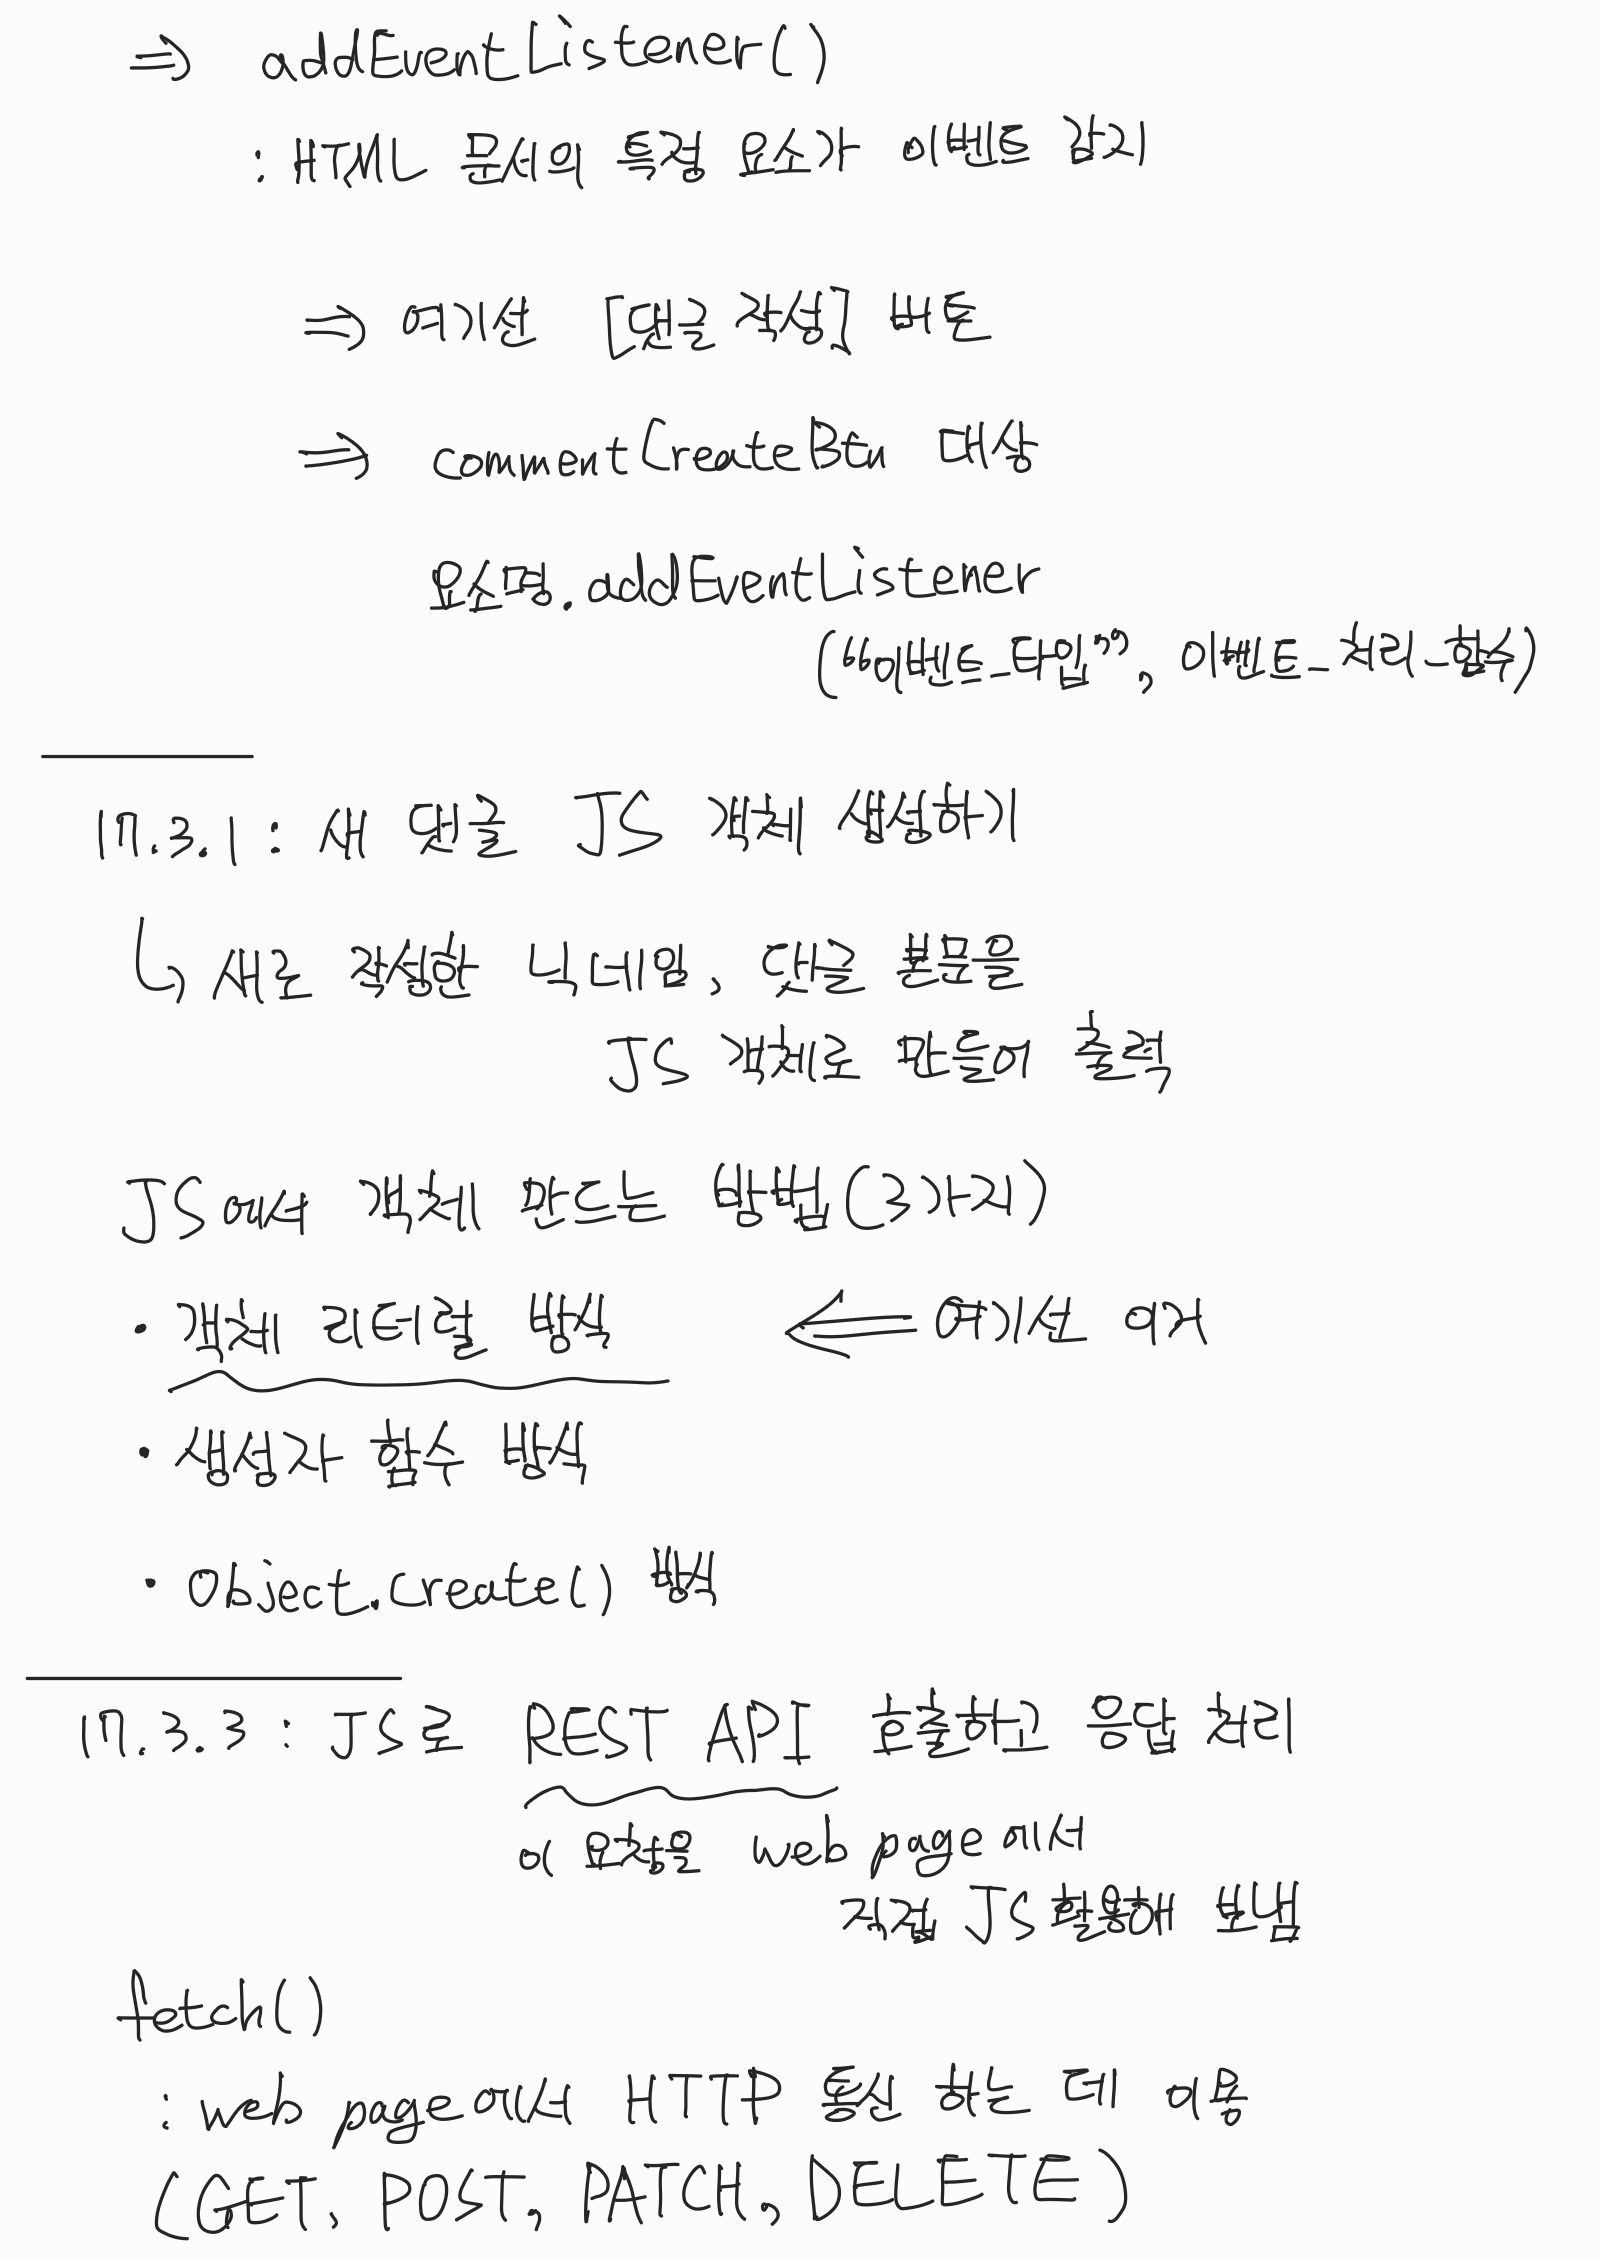 ⇒ addEventListener()
: HTML 문서의 특정 요소가 이벤트 감지
⇒ 여기선 [댓글 작성] 버튼
⇒ commentCreateBtn 대상
요소명.addEventListener
(“이벤트_타입”, 이벤트_처리_함수)
17.3.1 : 새 댓글 JS 객체 생성하기
↳ 새로 작성한 닉네임, 댓글 본문을
JS 객체로 만들어 출력
JS에서 객체 만드는 방법(3가지)
• 객체 리터럴 방식 ⇐ 여기선 이거
• 생성자 함수 방식
• Object.create() 방식
17.3.3 : JS로 REST API 호출하고 응답 처리
이 요청을 web page에서
직접 JS활용해 보냄
fetch()
: web page에서 HTTP 통신 하는 데 이용
(GET, POST, PATCH, DELETE)